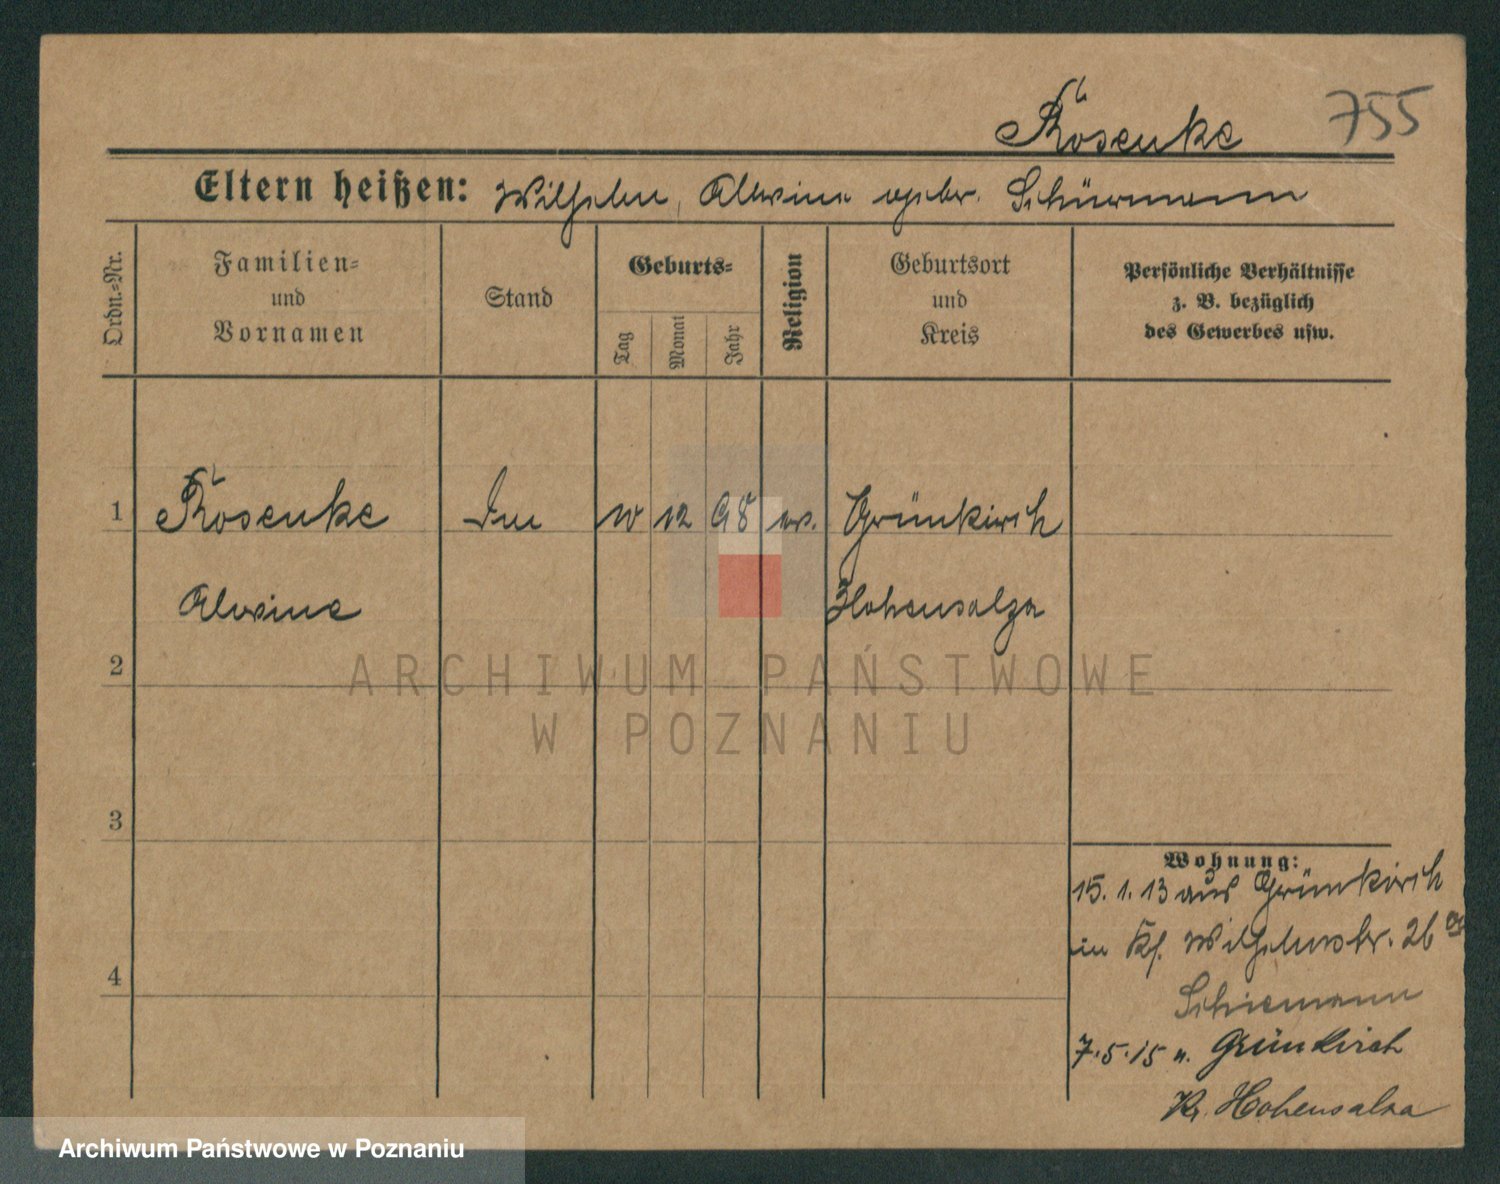 Rosenke 755
Eltern heißen: Wilhelm, Alwine geb. Schürmann
Ordn.-Nr.
Familien-
und
Vornamen
Stand
Geburts-
Tag
Monat
Jahr
Religion
Geburtsort
und
Kreis
Persönliche Verhältnisse
z. B. bezüglich
des Gewerbes usw.
1 Rosenke 10 12 98 ev. Grünkirch
Alwine Hohensalza
2
ARCHIWUM PAŃSTWOWE
W POZNANIU
3
4
Wohnung:
15. 1. 13 aus Grünkirch
in Wilhelmstr. 26
Schiemann
7.5.15 n. Grünkirch
Kr. Hohensalza
Archiwum Państwowe w Poznaniu